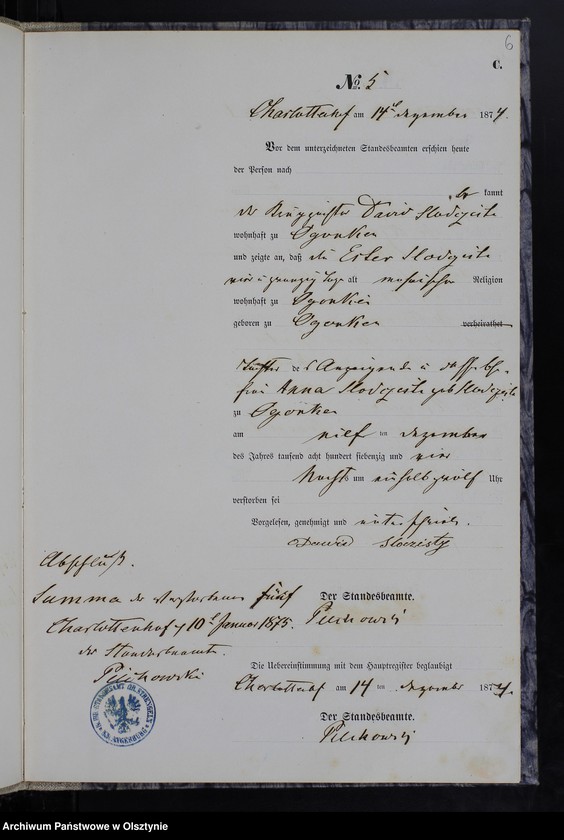 6
C.
No. 5
Charlottenhof am 14 Dezember 1874.
Vor dem unterzeichneten Standesbeamten erschien heute
der Person nach
kannt
der David
wohnhaft zu Ogonken
und zeigte an, daß die Ester
vier u zwanzig Tage alt mosaischer Religion
wohnhaft zu Ogonken
geboren zu Ogonken verheirathet
Tochter des Anzeigenden u
Anna geb
zu Ogonken
am elf ten Dezember
des Jahres tausend acht hundert siebenzig und vier
Nachts um ein halb zwölf Uhr
verstorben sei
Vorgelesen, genehmigt und unterschrieben.
Dawid
Abschluß.
Summa der Verstorbenen fünf
Charlottenhof 10 Januar 1875.
der Standesbeamte.
Der Standesbeamte.
Die Uebereinstimmung mit dem Hauptregister beglaubigt
Charlottenhof am 14 ten Dezember 1874.
Der Standesbeamte.
Archiwum Państwowe w Olsztynie